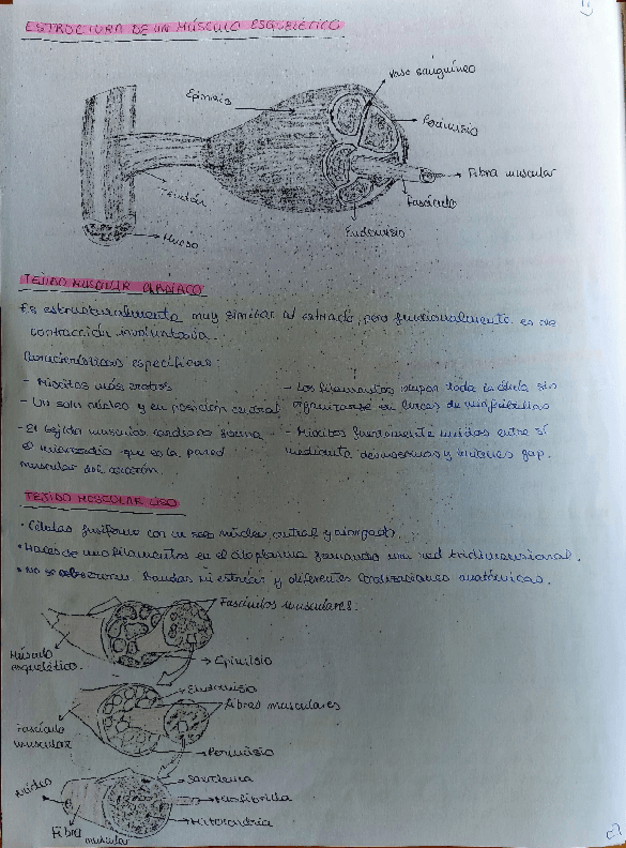 ESTRUCTURA DE UN MÚSCULO ESQUELÉTICO
Vaso sanguíneo
Epimisio
Perimisio
Fibra muscular
Tendón
Fascículo
Endomisio
Hueso
TEJIDO MUSCULAR CARDÍACO
Es estructuralmente muy similar al estriado, pero funcionalmente es de
contracción involuntaria.
Características específicas:
- Miocitos más cortos
- Un solo núcleo y en posición central
- El tejido muscular cardíaco forma
el miocardio que es la pared
muscular del corazón.
- Los filamentos ocupan toda la célula sin
organizarse en líneas de miofibrillas
- Miocitos fuertemente unidos entre sí
mediante desmosomas y uniones gap.
TEJIDO MUSCULAR LISO
• Células fusiforme con un solo núcleo, central y alargado
• Haces de miofilamentos en el citoplasma formando una red tridimensional.
• No se observan bandas ni estrías y diferentes localizaciones anatómicas.
Fascículos musculares.
Músculo
esquelético.
Epimisio
Endomisio
Fibras musculares
Fascículo
muscular
Perimisio
Sarcolema
Núcleo
Miofibrilla
Mitocondria
Fibra
muscular